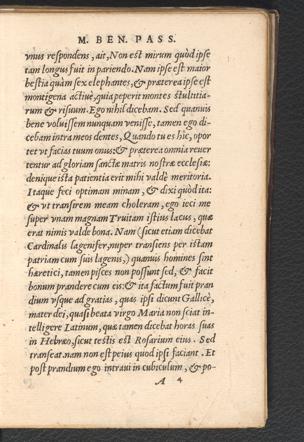 M. BEN. PASS.
vnus respondens, ait, Non est mirum quòd ipse
tam longus fuit in pariendo. Nam ipse est maior
bestia quàm sex elephantes, & præterea ipse est
montigena actiuè, quia peperit montes stultitia-
rum & risuum. Ego nihil dicebam. Sed quanuis
bene voluissem nunquam venisse, tamen ego di-
cebam intra meos dentes, Quando tu es hic, opor
tet vt facias tuum onus: & præterea omnia reuer
tentur ad gloriam sanctæ matris nostræ ecclesiæ:
denique ista patientia erit mihi valdè meritoria.
Itaque feci optimam minam, & dixi quòd ita:
& vt transirem meam choleram, ego ieci me
super vnam magnam Truitam istius lacus, quæ
erat nimis valde bona. Nam (sicut etiam dicebat
Cardinalis lagenifer, nuper transiens per istam
patriam cum suis lagenis,) quanuis homines sint
hæretici, tamen pisces non possunt sed, & facit
bonum prandere cum eis: & ita factum fuit pran
dium vsque ad gratias, quas ipsi dicunt Gallicè,
mater dei, quasi beata virgo Maria non sciat in-
telligere Latinum, quæ tamen dicebat horas suas
in Hebræo, sicut testis est Rosarium eius. Sed
transeat. nam non est peius quod ipsi faciant. Et
post prandium ego intraui in cubiculum, & po-
A 4